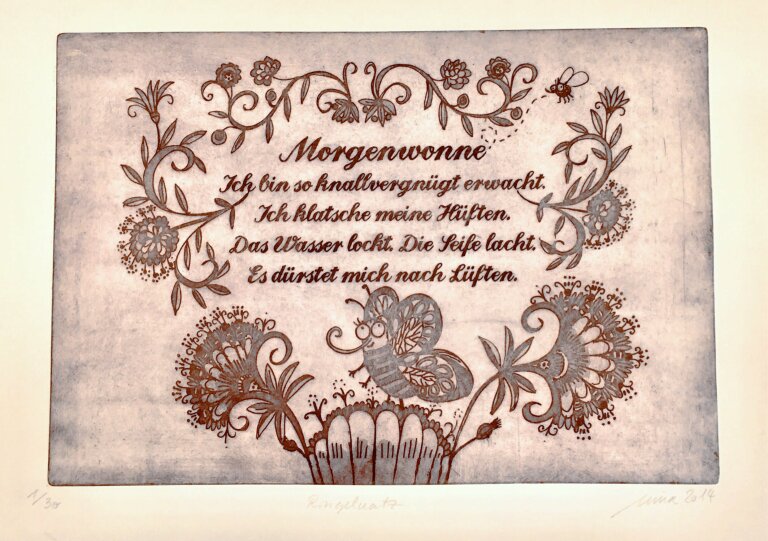 Morgenwonne
Ich bin so knallvergnügt erwacht.
Ich klatsche meine Hüften.
Das Wasser lockt. Die Seife lacht.
Es dürstet mich nach Lüften.
1/30 Ringelnatz 2014